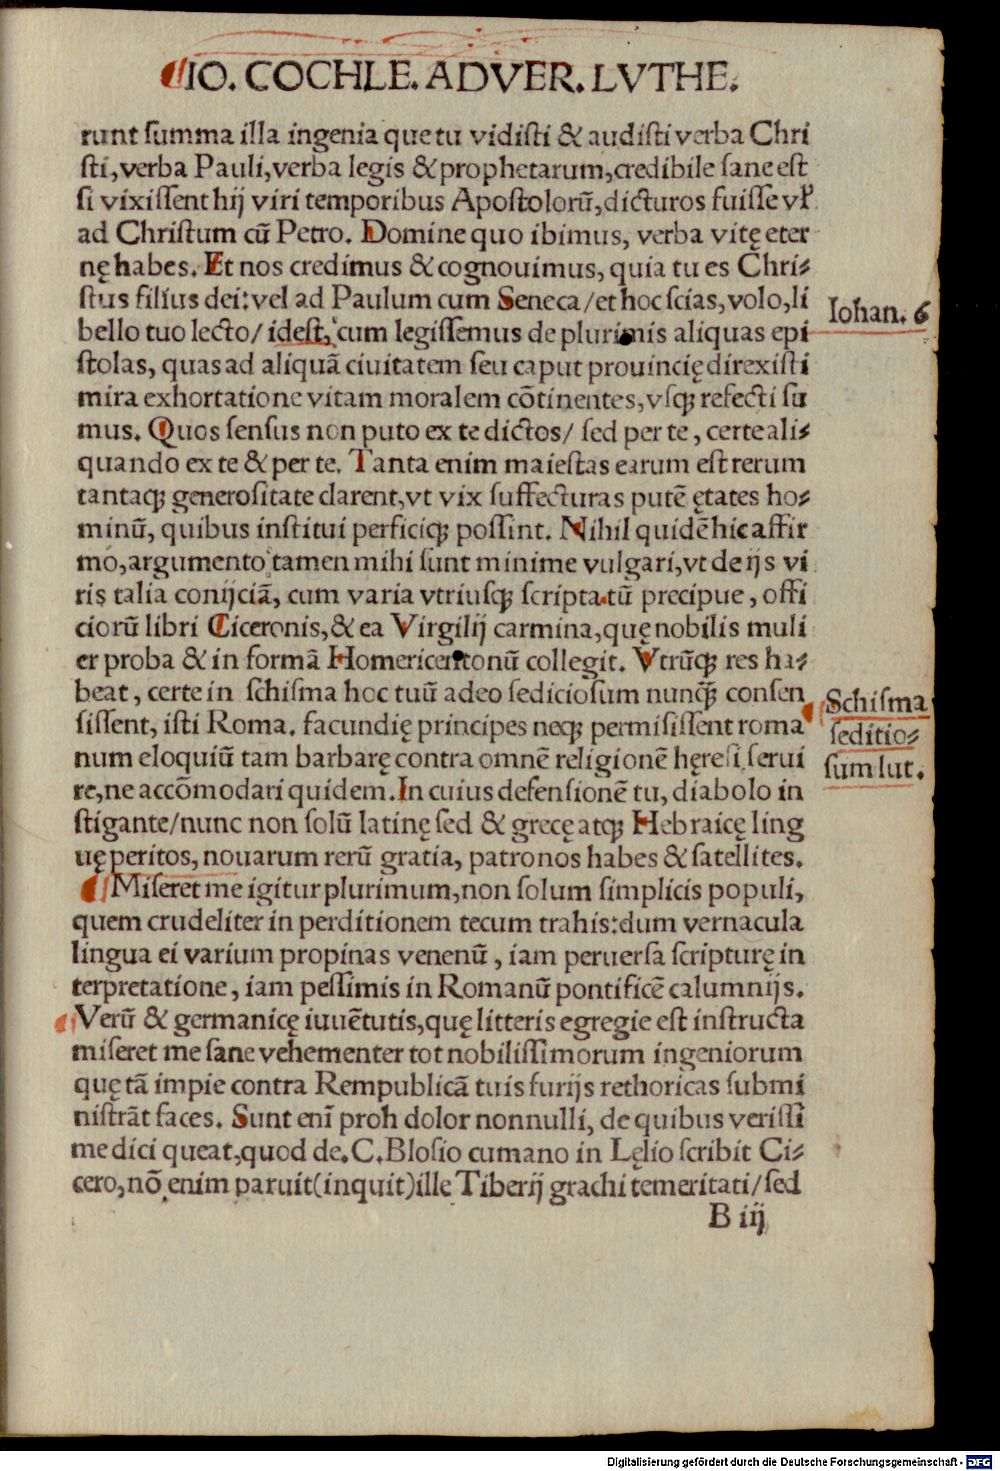 IO. COCHLE. ADVER. LVTHE.
runt ſumma illa ingenia que tu vidiſti & audiſti verba Chri
ſti, verba Pauli, verba legis & prophetarum, credibile ſane eſt
ſi vixiſſent hij viri temporibus Apoſtolorũ, dicturos fuiſſe vł
ad Chriſtum cũ Petro. Domine quo ibimus, verba vitę eter
nę habes. Et nos credimus & cognouimus, quia tu es Chri⸗
ſtus filius dei: vel ad Paulum cum Seneca / et hoc ſcias, volo, li
bello tuo lecto / ideſt, cum legiſſemus de plurimis aliquas epi
ſtolas, quas ad aliquã ciuitatem ſeu caput prouincię direxiſti
mira exhortatione vitam moralem cõtinentes, vſqꝫ refecti ſu
mus. Quos ſenſus non puto ex te dictos / ſed per te, certe ali⸗
quando ex te & per te. Tanta enim maieſtas earum eſt rerum
tantaqꝫ generoſitate clarent, vt vix ſuffecturas putẽ ętates ho⸗
minũ, quibus inſtitui perficiqꝫ poſſint. Nihil quidẽ hic affir
mo, argumento tamen mihi ſunt minime vulgari, vt de ijs vi
ris talia conijciã, cum varia vtriuſqꝫ ſcripta. tũ precipue, offi
ciorũ libri Ciceronis, & ea Virgilij carmina, quę nobilis muli
er proba & in formã Homericentonũ collegit. Vtrũqꝫ res ha⸗
beat, certe in ſchiſma hoc tuũ adeo ſedicioſum nunq̃ȝ conſen
ſiſſent, iſti Roma. facundię principes neqꝫ permiſiſſent roma
num eloquiũ tam barbarę contra omnẽ religionẽ hęreſi ſerui
re, ne accõmodari quidem. In cuius defenſionẽ tu, diabolo in
ſtigante / nunc non ſolũ latinę ſed & grecę atqꝫ Hebraicę ling
uę peritos, nouarum rerũ gratia, patronos habes & ſatellites.
Miſeret me igitur plurimum, non ſolum ſimplicis populi,
quem crudeliter in perditionem tecum trahis: dum vernacula
lingua ei varium propinas venenũ, iam peruerſa ſcripturę in
terpretatione, iam peſſimis in Romanũ pontificẽ calumnijs.
Verũ & germanicę iuuẽtutis, quę litteris egregie eſt inſtructa
miſeret me ſane vehementer tot nobiliſſimorum ingeniorum
quę tã impie contra Rempublicã tuis furijs rethoricas ſubmi
niſtrãt faces. Sunt enĩ proh dolor nonnulli, de quibus veriſſi
me dici queat, quod de. C. Bloſio cumano in Lęlio ſcribit Ci⸗
cero, nõ enim paruit (inquit) ille Tiberij grachi temeritati / ſed
B iij
Iohan. 6
Schiſma
ſeditio⸗
ſum lut.
Digitalisierung gefördert durch die Deutsche Forschungsgemeinschaft - DFG